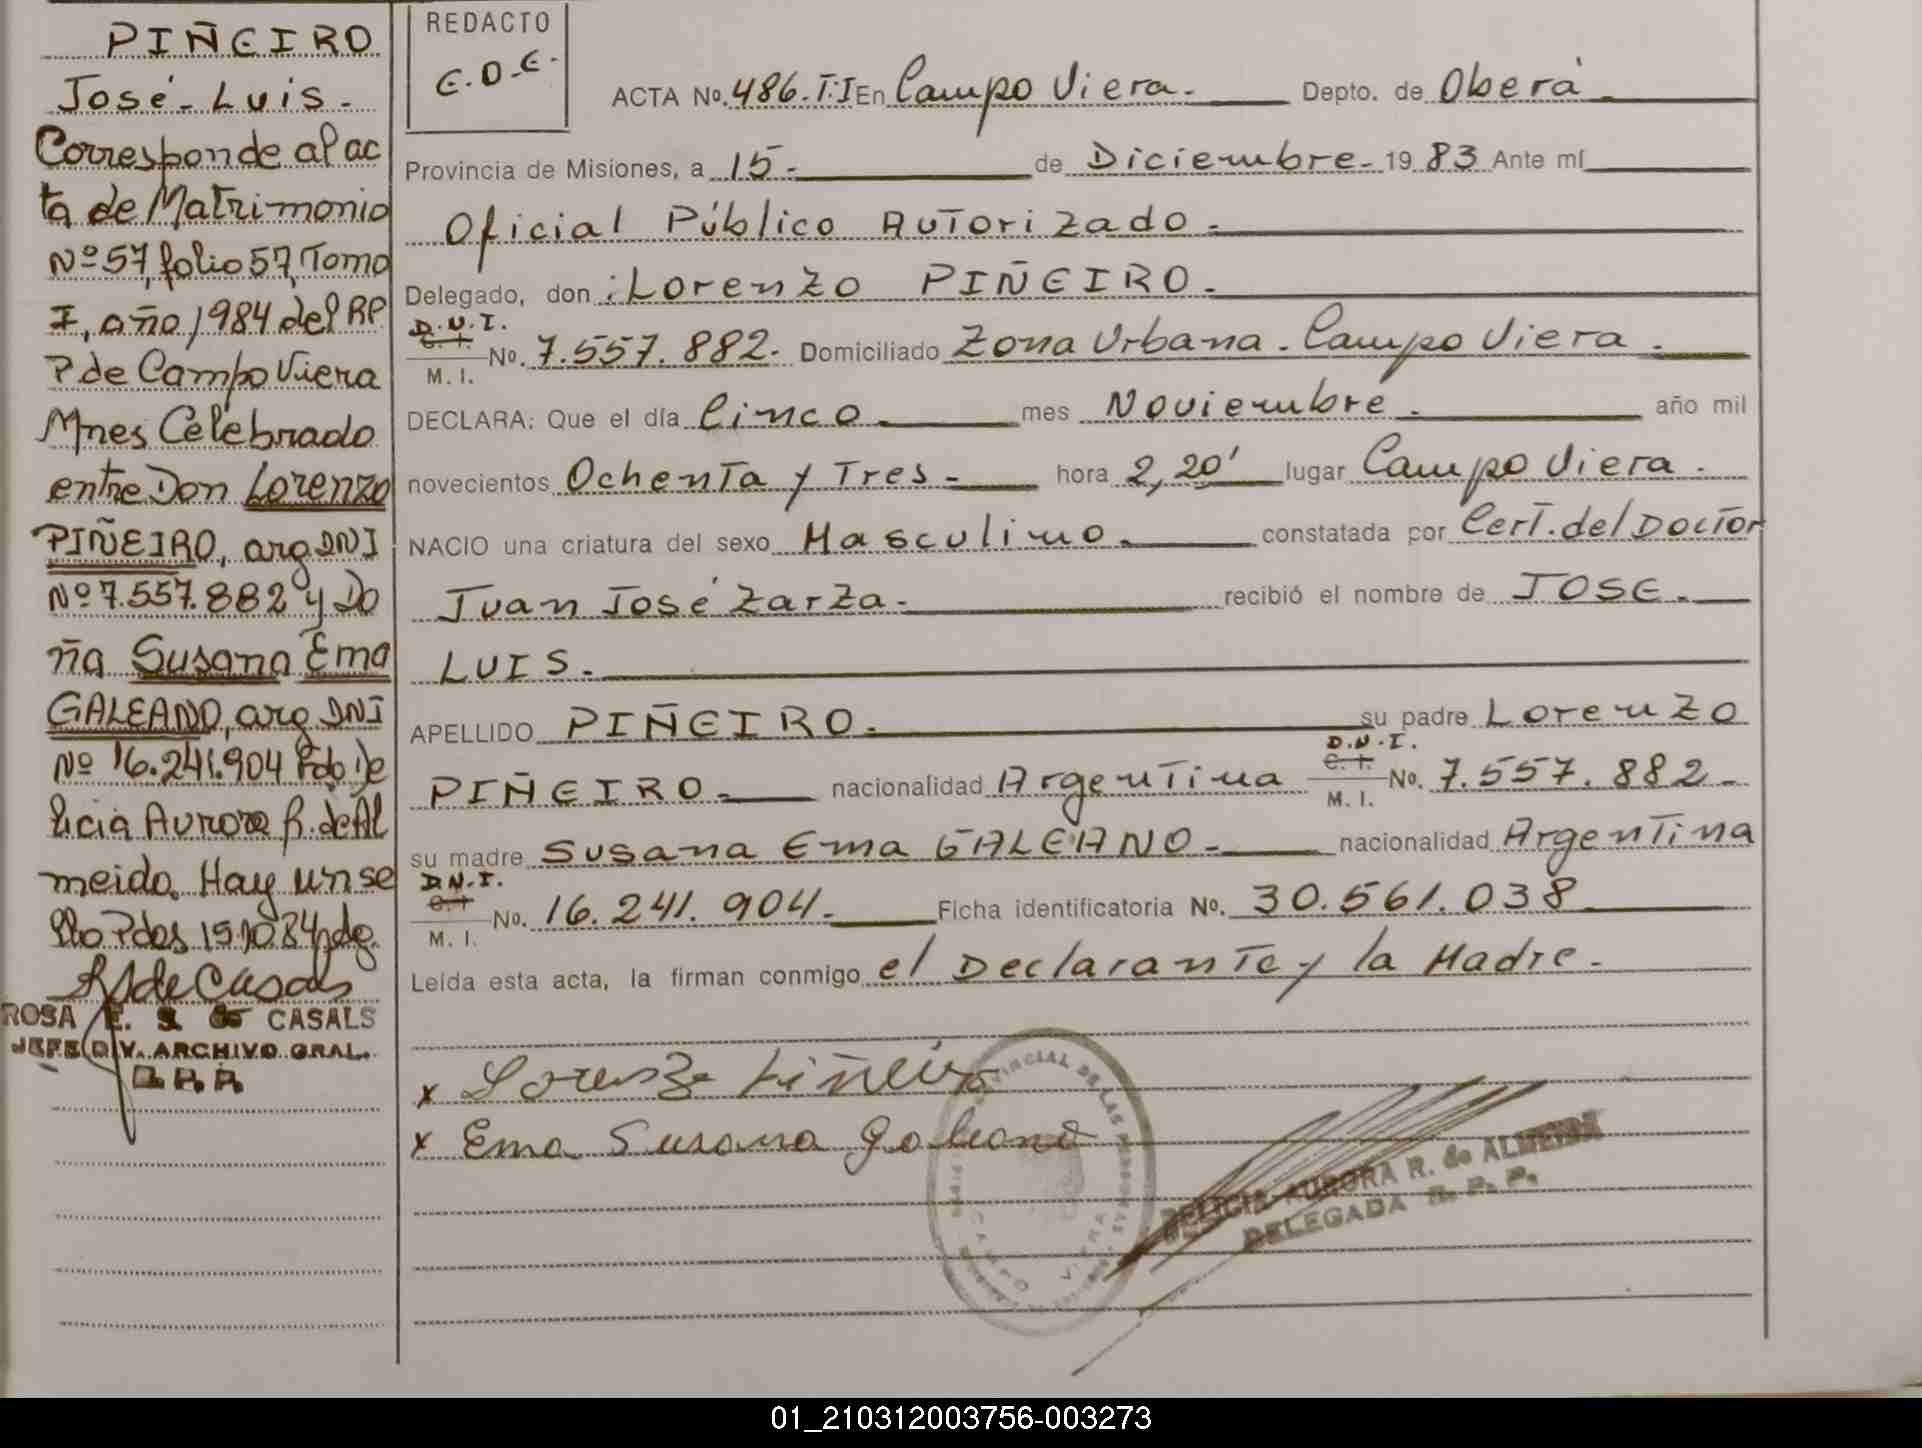 PIÑEIRO
José-Luis-
Corresponde al ac
ta de Matrimonio
Nº 57, folio 57, Tomo
I, año 1984 del RP
P de Campo Viera
Mnes Celebrado
entre Don Lorenzo
PIÑEIRO, arg DNI
Nº 7.557.882 y Do
ña Susana Ema
GALEANO, arg DNI
Nº 16.241.904 Fdo De
licia Aurora R. de Al
meida. Hay un se
llo Pdas 15.10.84
ROSA E. S. de CASALS
JEFE DIV. ARCHIVO GRAL.
R.P.P.
REDACTO
E.D.E.
ACTA No. 486.T.I En Campo Viera.- Depto. de Oberá.-
Provincia de Misiones, a 15.- de Diciembre- 19 83 Ante mí
Oficial Público Autorizado.-
Delegado, don: Lorenzo PIÑEIRO.
D.N.I.
C. I.
M. I. No. 7.557.882. Domiciliado Zona Urbana. Campo Viera.-
DECLARA: Que el día Cinco mes Noviembre. año mil
novecientos Ochenta y Tres.- hora 2,20' lugar Campo Viera.
NACIO una criatura del sexo Masculino.- constatada por Cert. del Doctor
Juan José Zarza.- recibió el nombre de JOSE.-
LUIS.-
APELLIDO PIÑEIRO.- su padre Lorenzo
PIÑEIRO.- nacionalidad Argentina D.N.I. C. I. M. I. No. 7.557.882-
su madre Susana Ema GALEANO.- nacionalidad Argentina
D.N.I.
C. I.
M. I. No. 16.241.904.- Ficha identificatoria No. 30.561.038
Leída esta acta, la firman conmigo el Declarante y la Madre.-
x Lorenzo Piñeiro
x Ema Susana Galeano
PROVINCIAL DE LAS PERSONAS
CAMPO VIERA
DELICIA AURORA R. de ALMEIDA
DELEGADA R. P. P.
01_210312003756-003273